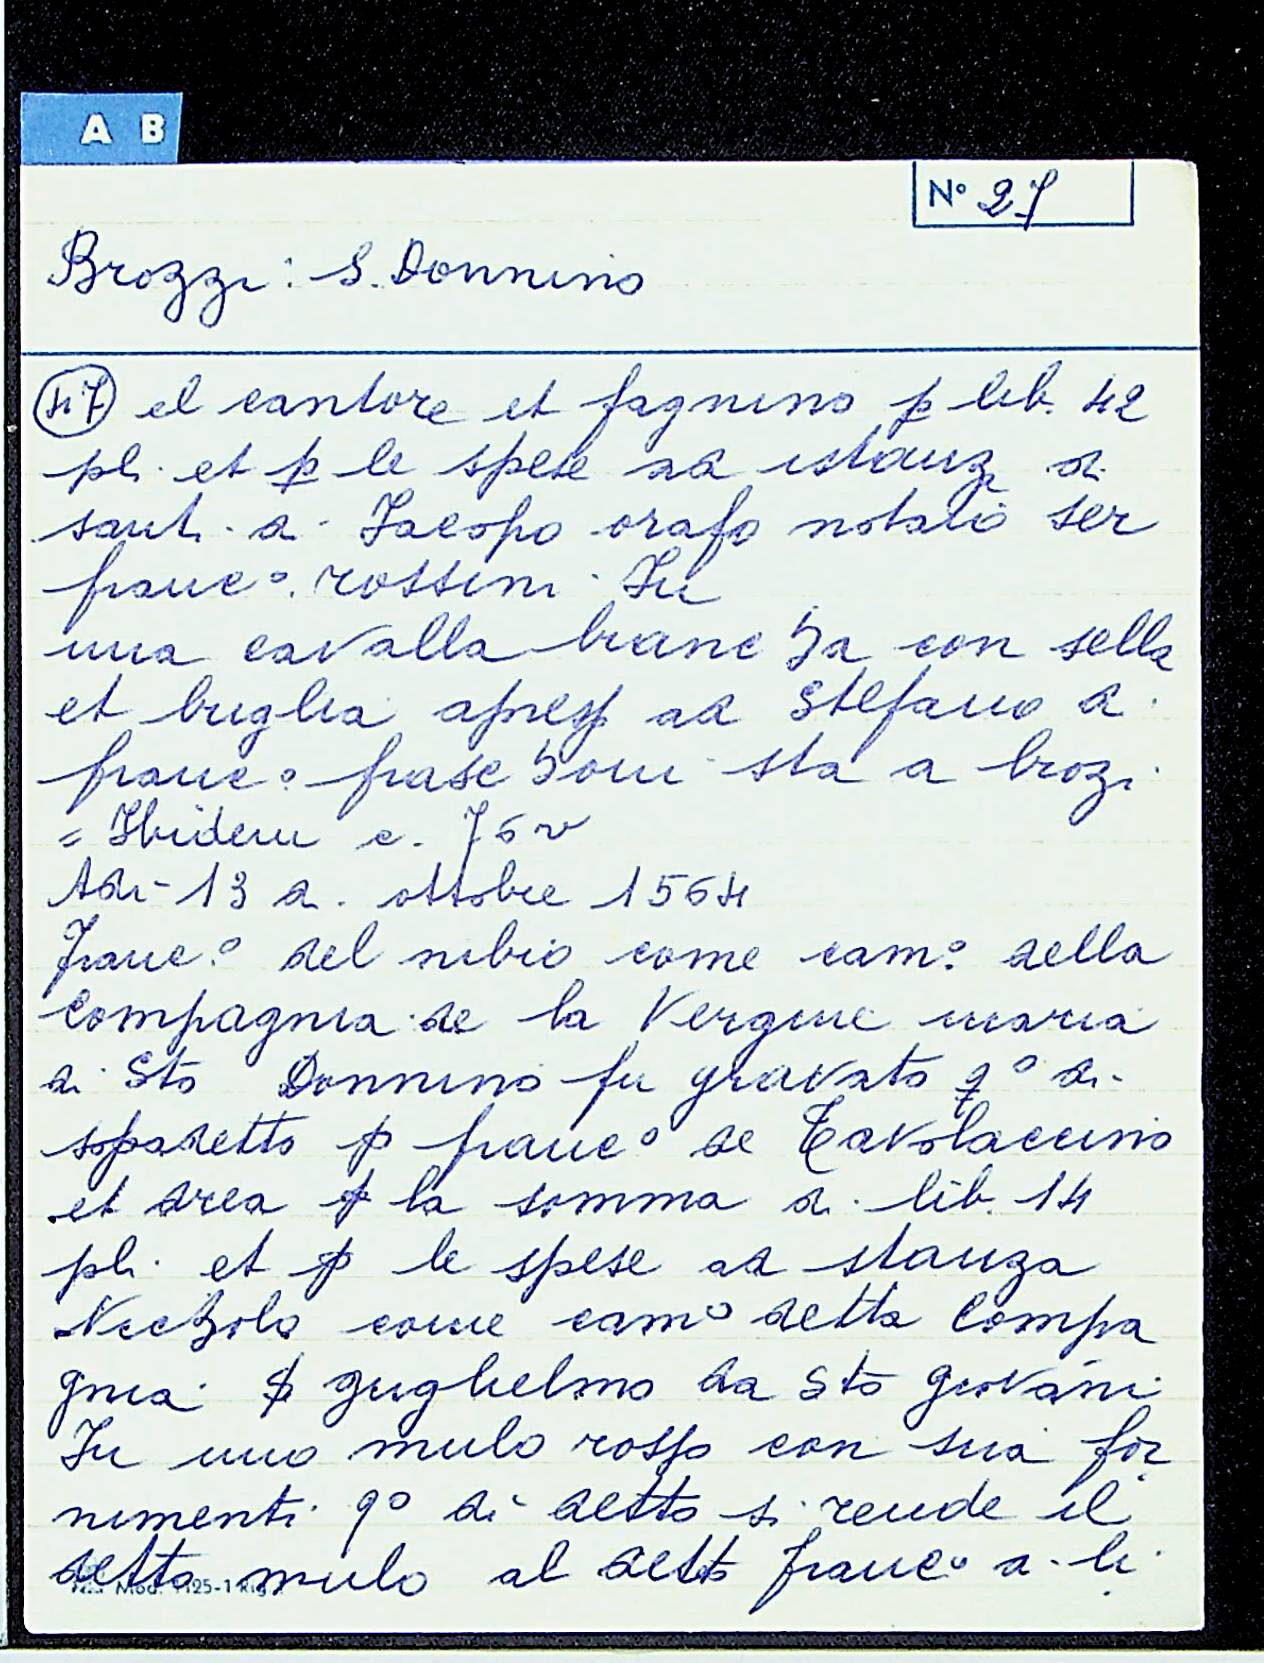 A B
N° 27
Brozzi: S. Donnino
47 el cantore et fagnino p lib. 42
pli. et p le spese ad istanz di
sant. di Jacopo orafo notaio ser
franc°. rossini. In
una cavalla brancha con sella
et briglia apress ad Stefano di
franc° fraschoni sta a brozi
= Ibidem c. 76v
Adi 13 di ottobre 1564
Franc.° del nibio come cam.° della
Compagnia de la Vergine maria
di Sto Donnino fu gravato q° di
sopadetto p franc° de Tavolaccino
et drea p la somma di lib. 14
pli. et p le spese ad stanza
Nicholo come cam° detta Compa
gnia p guglielmo da Sto giovani
In uno mulo rosso con sua for
nimenti q° di detto si rende il
detto mulo al detto franc° a li
Mod. 1125-1 Rig.